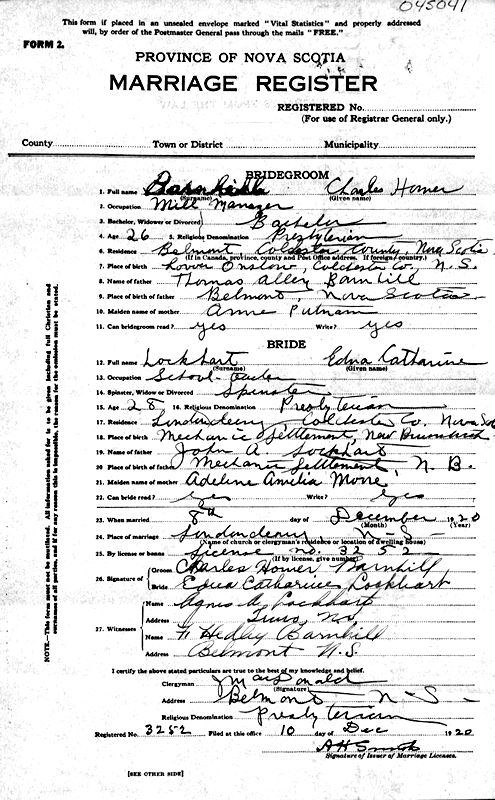 045041
This form if placed in an unsealed envelope marked "Vital Statistics" and properly addressed
will, by order of the Postmaster General pass through the mails "FREE."
FORM 2.
PROVINCE OF NOVA SCOTIA
MARRIAGE REGISTER
REGISTERED No.
(For use of Registrar General only.)
County Town or District Municipality
BRIDEGROOM
1. Full name Barnhill Charles Homer
(Surname) (Given name)
2. Occupation Mill Manager
3. Bachelor, Widower or Divorced Bachelor
4. Age 26 5. Religious Denomination Presbyterian
6. Residence Belmont, Colchester County, Nova Scotia
(If in Canada, province, county and Post Office address. If foreign, country.)
7. Place of birth Lower Onslow, Colchester Co, N. S.
8. Name of father Thomas Alley Barnhill
9. Place of birth of father Belmont, Nova Scotia
10. Maiden name of mother Anne Putnam
11. Can bridegroom read? yes Write? yes
BRIDE
12. Full name Lockhart Edna Catharine
(Surname) (Given name)
13. Occupation School-
14. Spinster, Widow or Divorced Spinster
15. Age 28 16. Religious Denomination Presbyterian
17. Residence Londonderry, Colchester Co. Nova Sco
18. Place of birth Mechanic Settlement, New Brunswick
19. Name of father John A. Lockhart
20. Place of birth of father Mechanic Settlement, N. B.
21. Maiden name of mother Adeline Amelia Moore
22. Can bride read? yes Write? yes
23. When married 8th day of December 1920
(Month) (Year)
24. Place of marriage Londonderry N-S-
(Name of church or clergyman's residence or location of dwelling house)
25. By license or banns License no. 3252
(If by license, give number)
26. Signature of Groom Charles Homer Barnhill
Bride Edna Catharine Lockhart
27. Witnesses Name Agnes A. Lockhart
Address Truro, N.S.
Name Hedley Barnhill
Address Belmont N.S.
I certify the above stated particulars are true to the best of my knowledge and belief.
Clergyman MacDonald
(Signature)
Address Belmont N-S-
Religious Denomination Presbyterian
Registered No. 3252 Filed at this office 10 day of Dec 1920
AH Smith
Signature of Issuer of Marriage Licenses.
[SEE OTHER SIDE]
NOTE.—This form must not be mutilated. All information asked for is to be given including full Christian and
surnames of all parties, and if for any reason this is impossible, the reason for the omission must be stated.